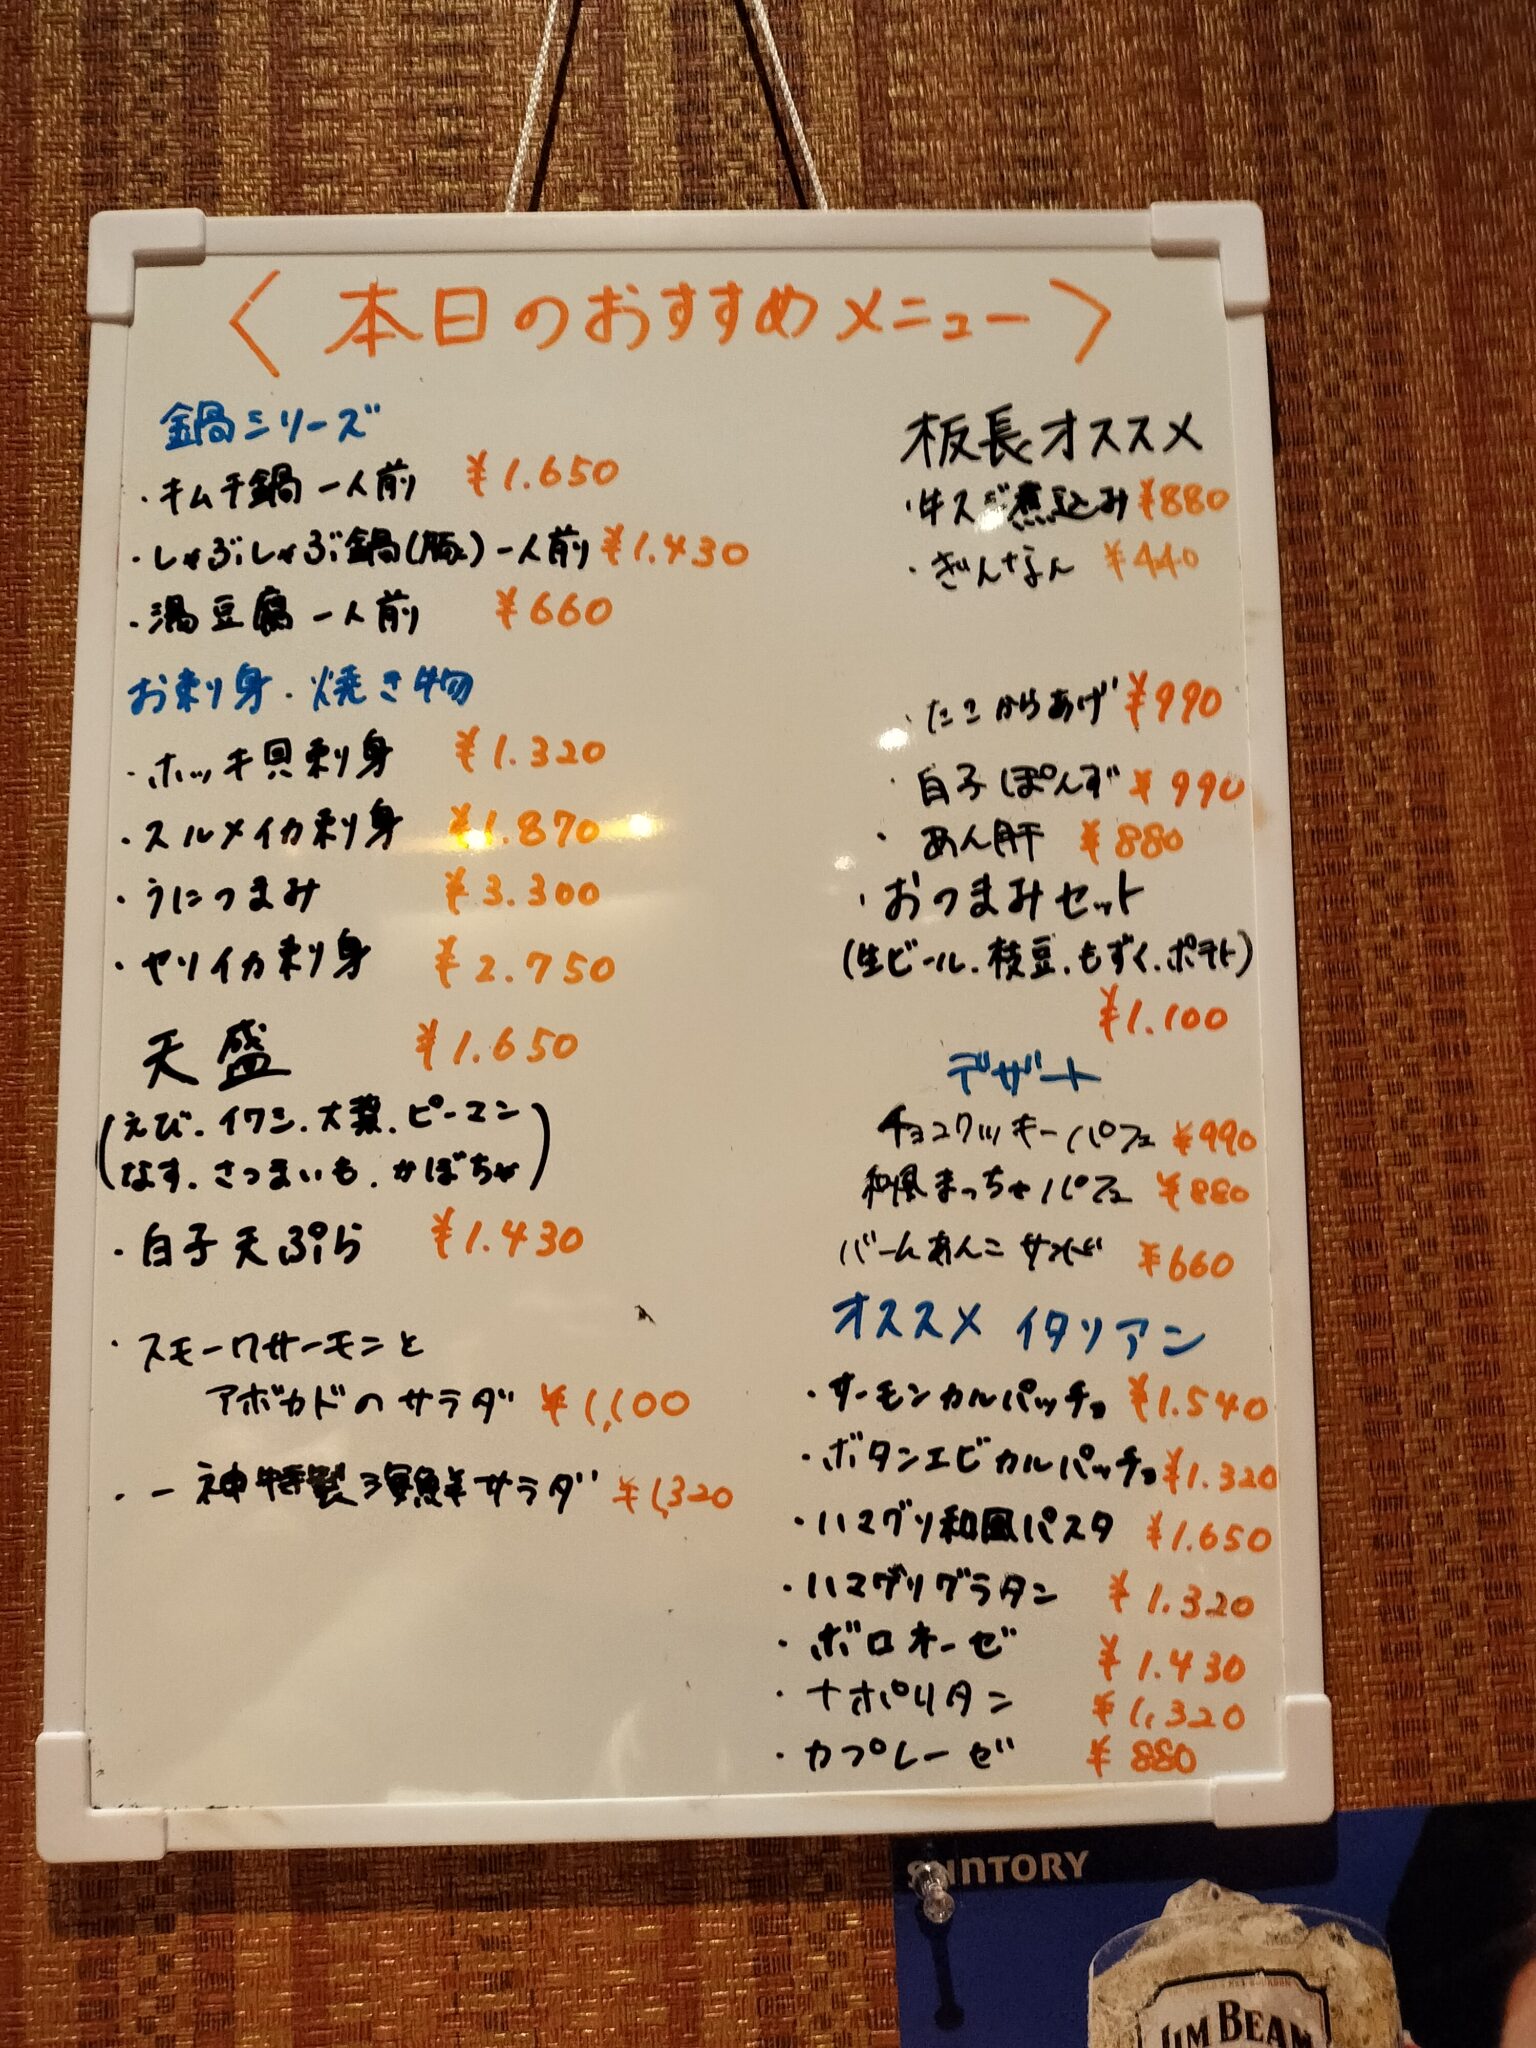 〈 本日のおすすめメニュー 〉
鍋シリーズ
・キムチ鍋 一人前 ¥1.650
・しゃぶしゃぶ鍋(豚) 一人前 ¥1.430
・湯豆腐 一人前 ¥660
お刺身・焼き物
・ホッキ貝刺身 ¥1.320
・スルメイカ刺身 ¥1.870
・うにつまみ ¥3.300
・ヤリイカ刺身 ¥2.750
天盛 ¥1.650
(えび.イワシ.大葉.ピーマン
なす.さつまいも.かぼちゃ)
・白子天ぷら ¥1.430
・スモークサーモンと
アボカドのサラダ ¥1,100
・一神特製海鮮サラダ ¥1,320
板長オススメ
・牛スジ煮込み ¥880
・ぎんなん ¥440
・たこからあげ ¥990
・白子ぽんず ¥990
・あん肝 ¥880
・おつまみセット
(生ビール.枝豆.もずく.ポテト)
¥1.100
デザート
チョコクッキーパフェ ¥990
和風まっちゃパフェ ¥880
バームあんこサンド ¥660
オススメ イタリアン
・サーモンカルパッチョ ¥1.540
・ボタンエビカルパッチョ ¥1.320
・ハマグリ和風パスタ ¥1.650
・ハマグリグラタン ¥1.320
・ボロネーゼ ¥1.430
・ナポリタン ¥1,320
・カプレーゼ ¥880
SUNTORY
JIM BEAM